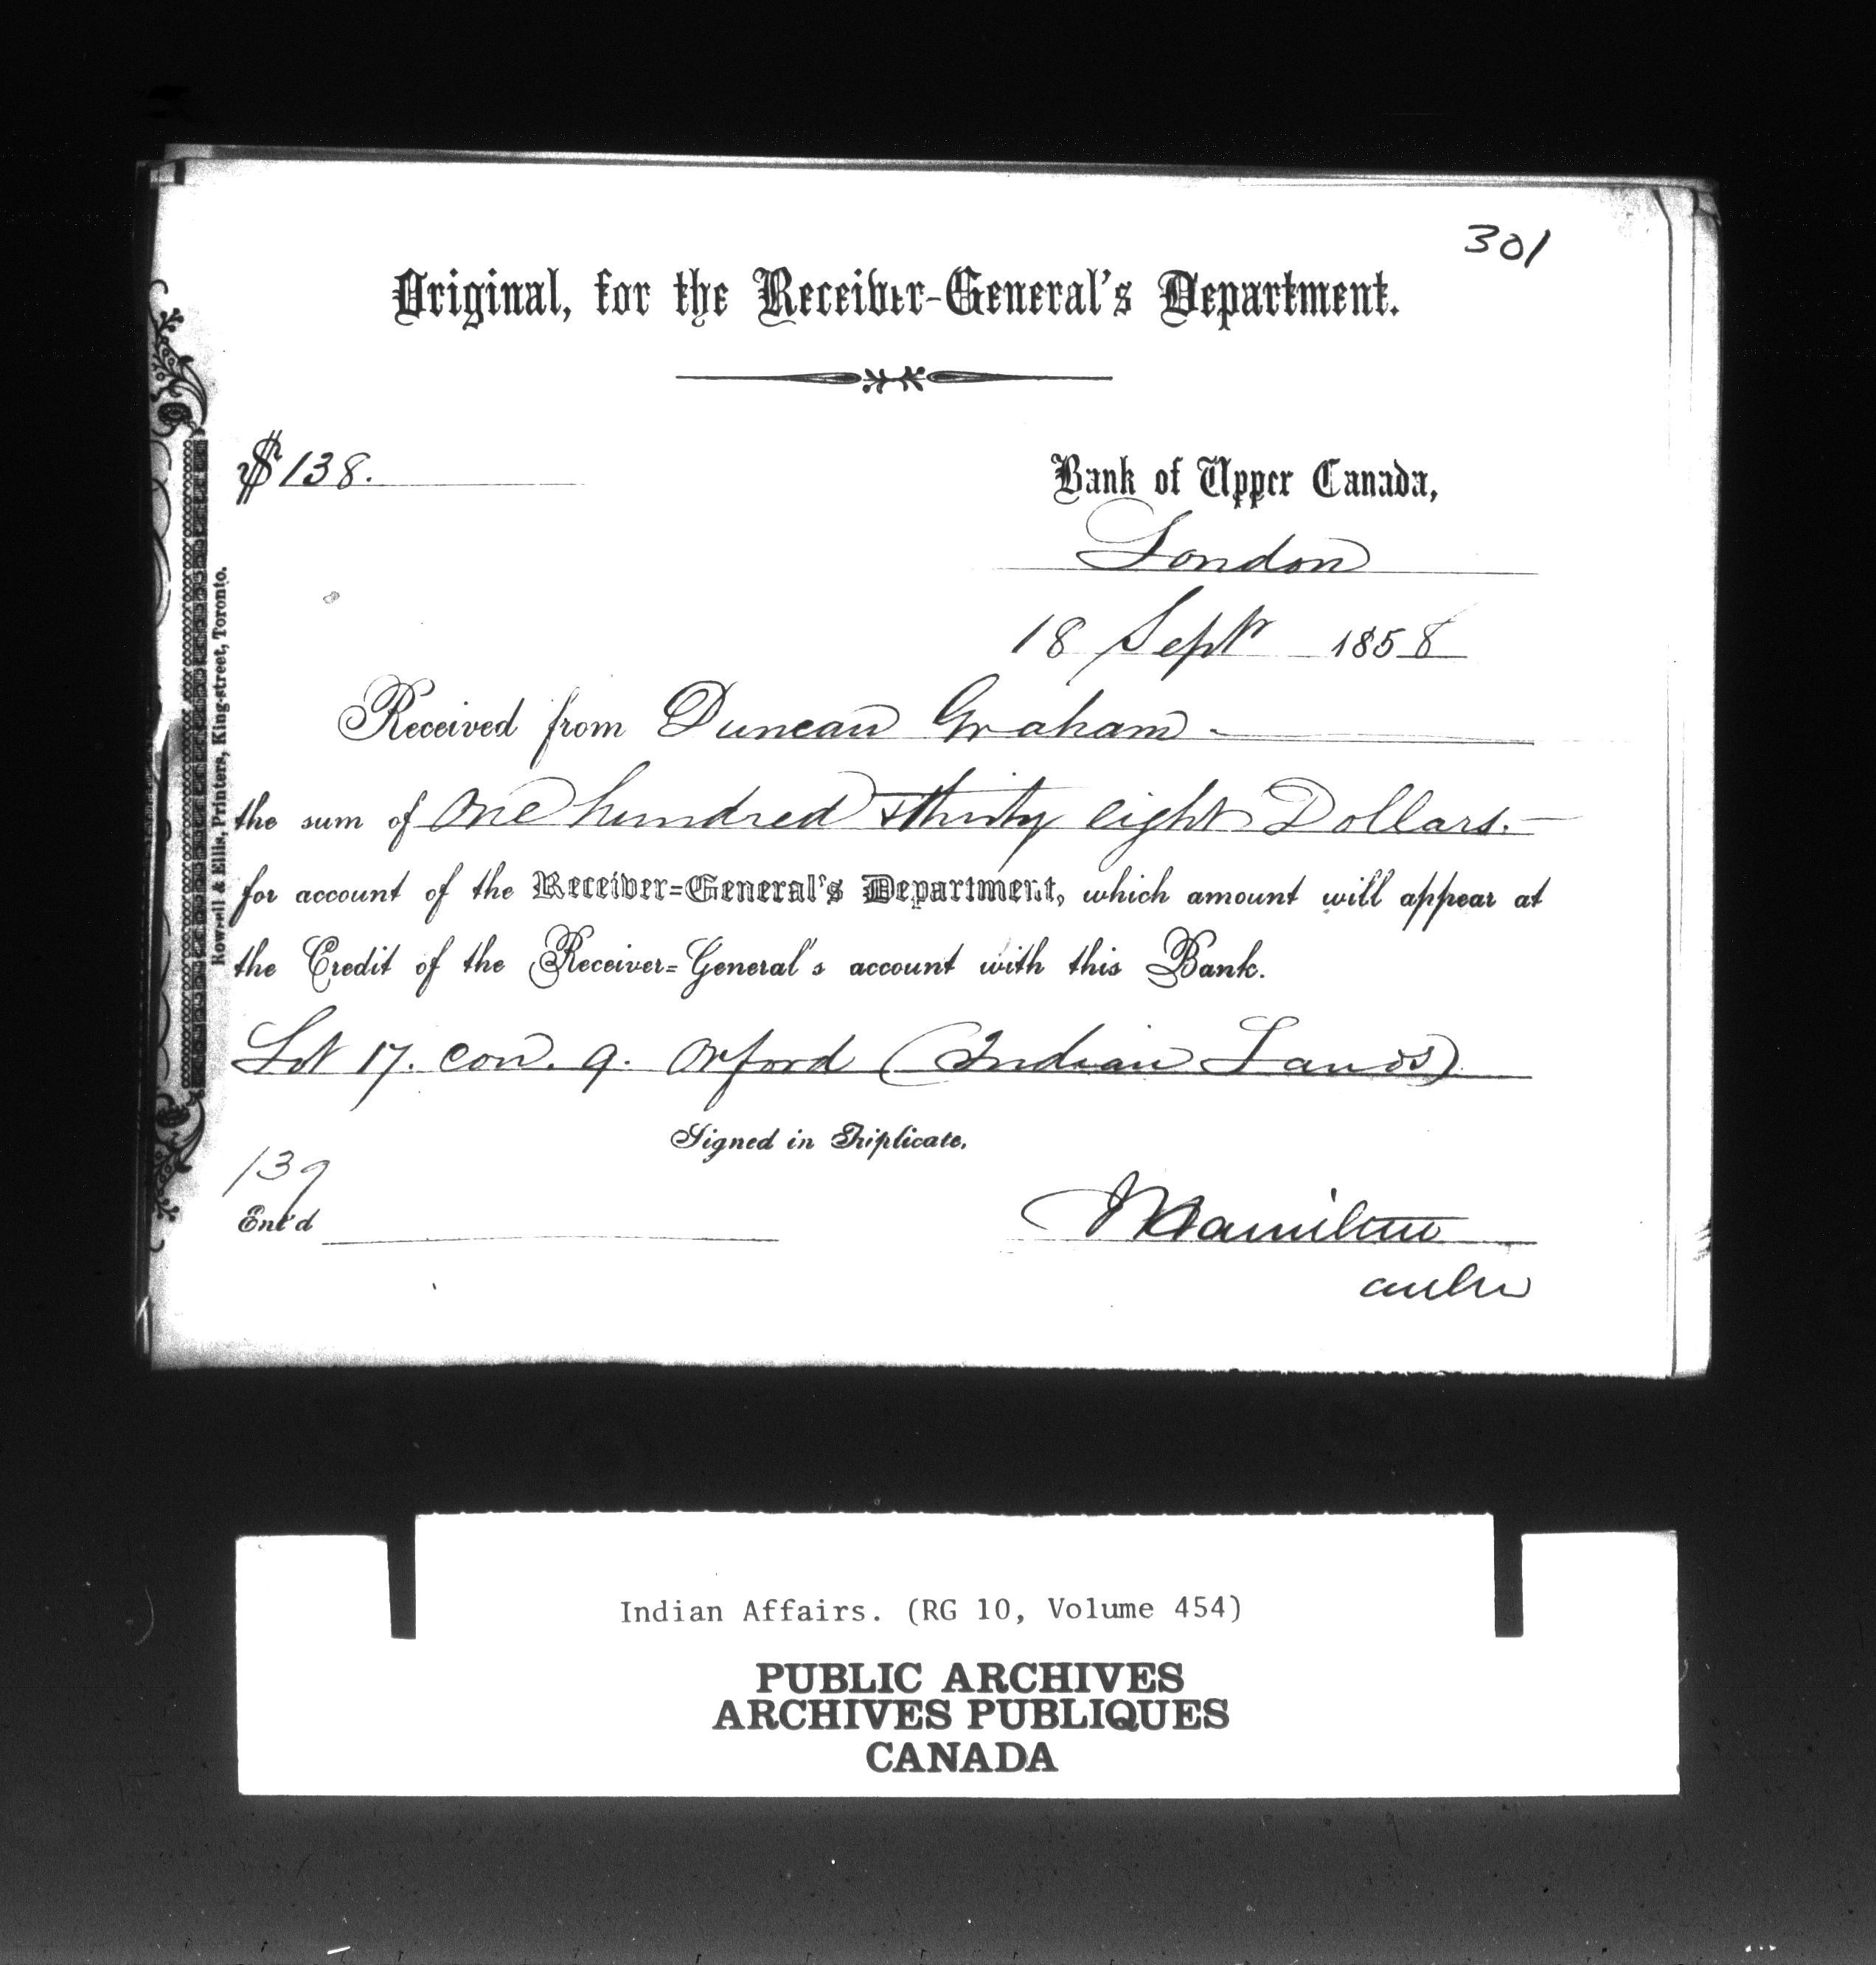 301
Original, for the Receiver-General's Department.
$138.
Bank of Upper Canada,
London
18 Septr 1858
Received from Duncan Graham
the sum of One hundred & thirty eight Dollars.
for account of the Receiver=General's Department, which amount will appear at
the Credit of the Receiver=General's account with this Bank.
Lot 17. con. 9. Orford (Indian Lands)
Signed in Triplicate.
139
Ent'd
Hamilton
Rowsell & Ellis, Printers, King-street, Toronto.
Indian Affairs. (RG 10, Volume 454)
PUBLIC ARCHIVES
ARCHIVES PUBLIQUES
CANADA